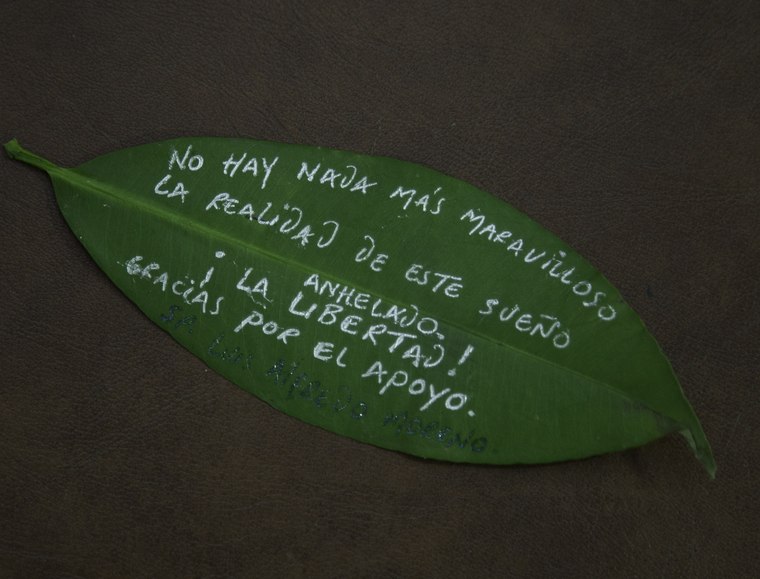 NO HAY NADA MÁS MARAVILLOSO
LA REALIDAD DE ESTE SUEÑO
ANHELADO.
¡ LA LIBERTAD!
GRACIAS POR EL APOYO.
SP. LUIS ALFREDO MORENO.